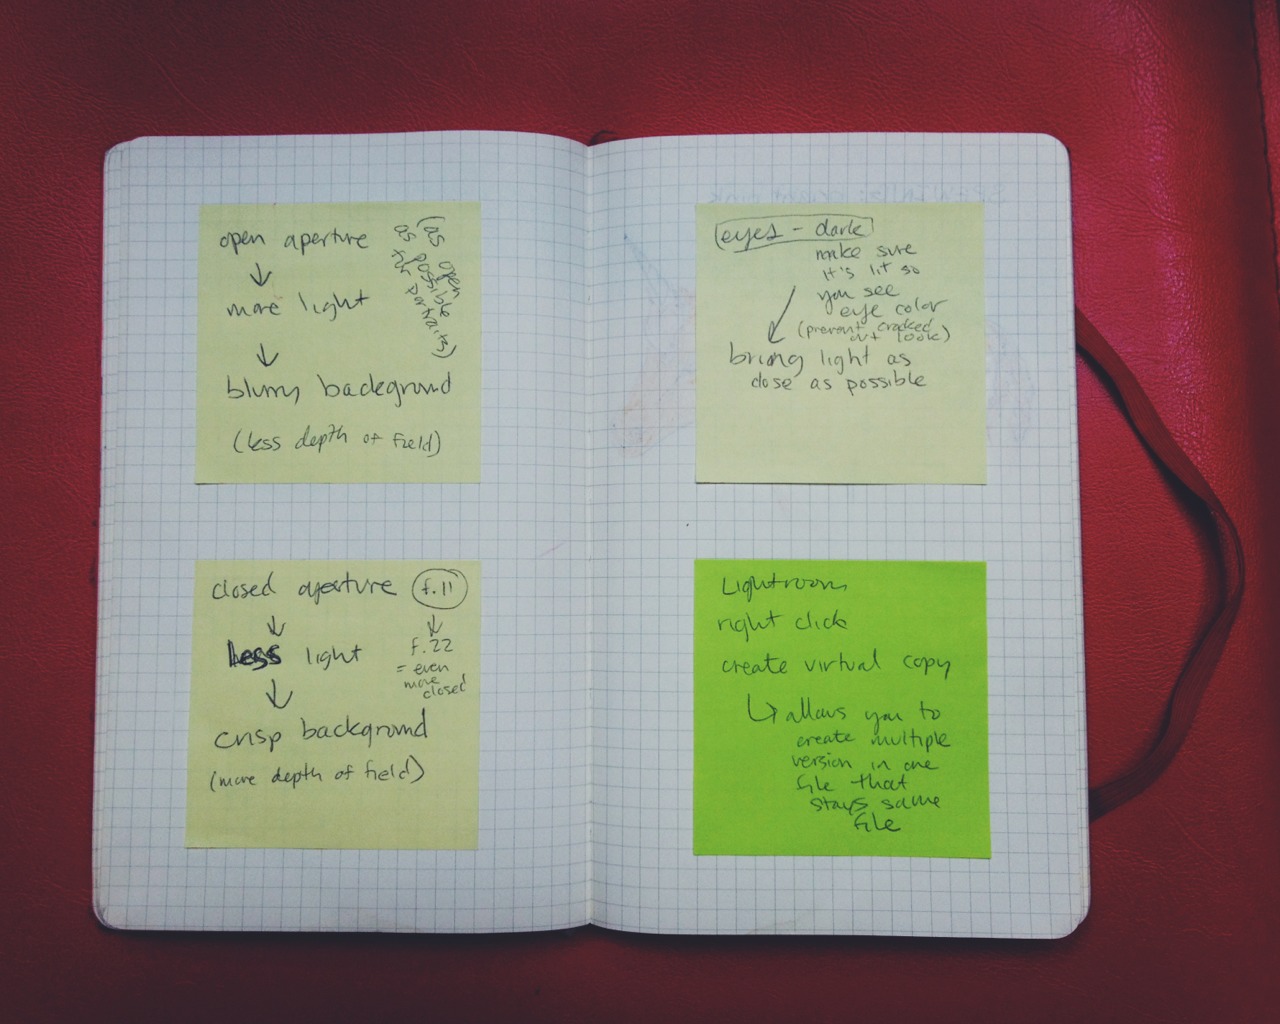 open aperture
↓
more light
↓
blurry background
(less depth of field)
(as open
as possible
for portraits)
closed aperture f.11
↓ ↓
less light f.22
= even
more
closed
↓
crisp background
(more depth of field)
eyes - dark
make sure
it's lit so
you see
eye color
(prevent cracked
out look)
bring light as
close as possible
Lightroom
right click
create virtual copy
↳ allows you to
create multiple
version in one
file that
stays same
file